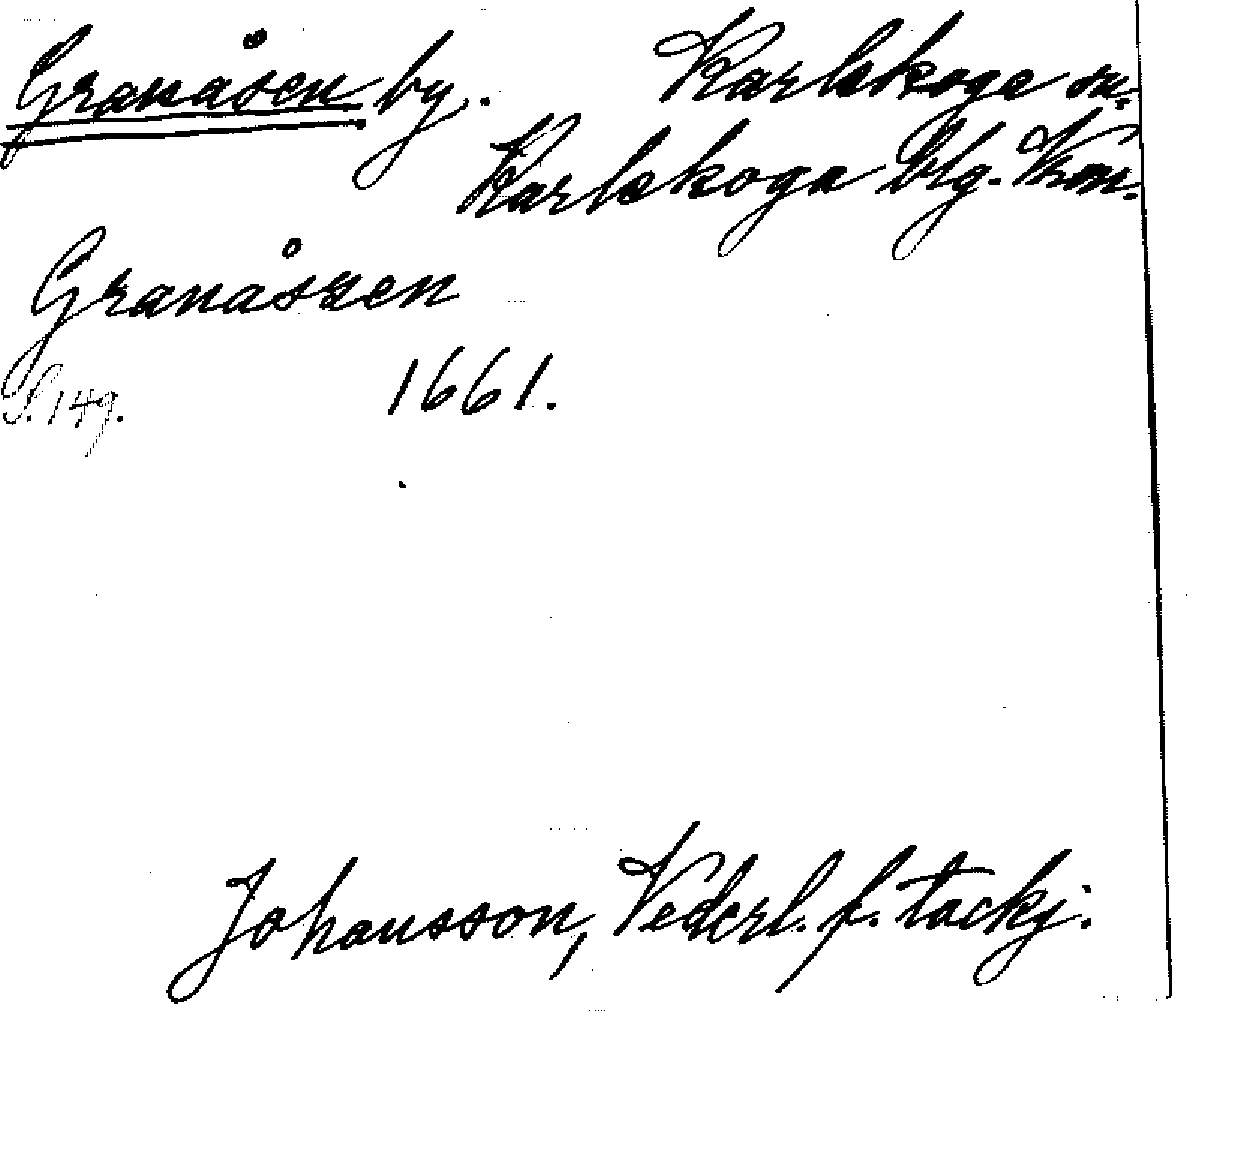 Granåsen by. Karlskoga sn.
Karlskoga blg. Krm.
Granåssen
S. 149. 1661.
Johansson, Vederl. f. tackj.